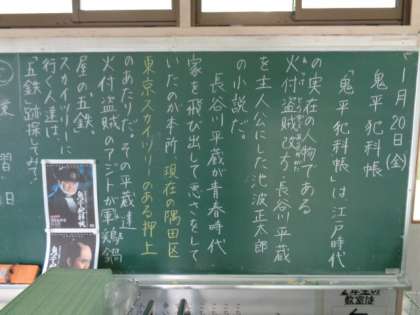 1月20日(金)
鬼平犯科帳
「鬼平犯科帳」は江戸時代
の実在の人物である
火付盗賊改方・長谷川平蔵
を主人公にした池波正太郎
の小説だ。
長谷川平蔵が青春時代
家を飛び出して悪さをして
いたのが本所、現在の隅田区
東京スカイツリーのある押上
のあたりだ。その平蔵達
火付盗賊のアジトが軍鶏鍋
屋の五鉄。
スカイツリーに
行く人達は、
「五鉄」跡探してみて。
鬼平犯科帳